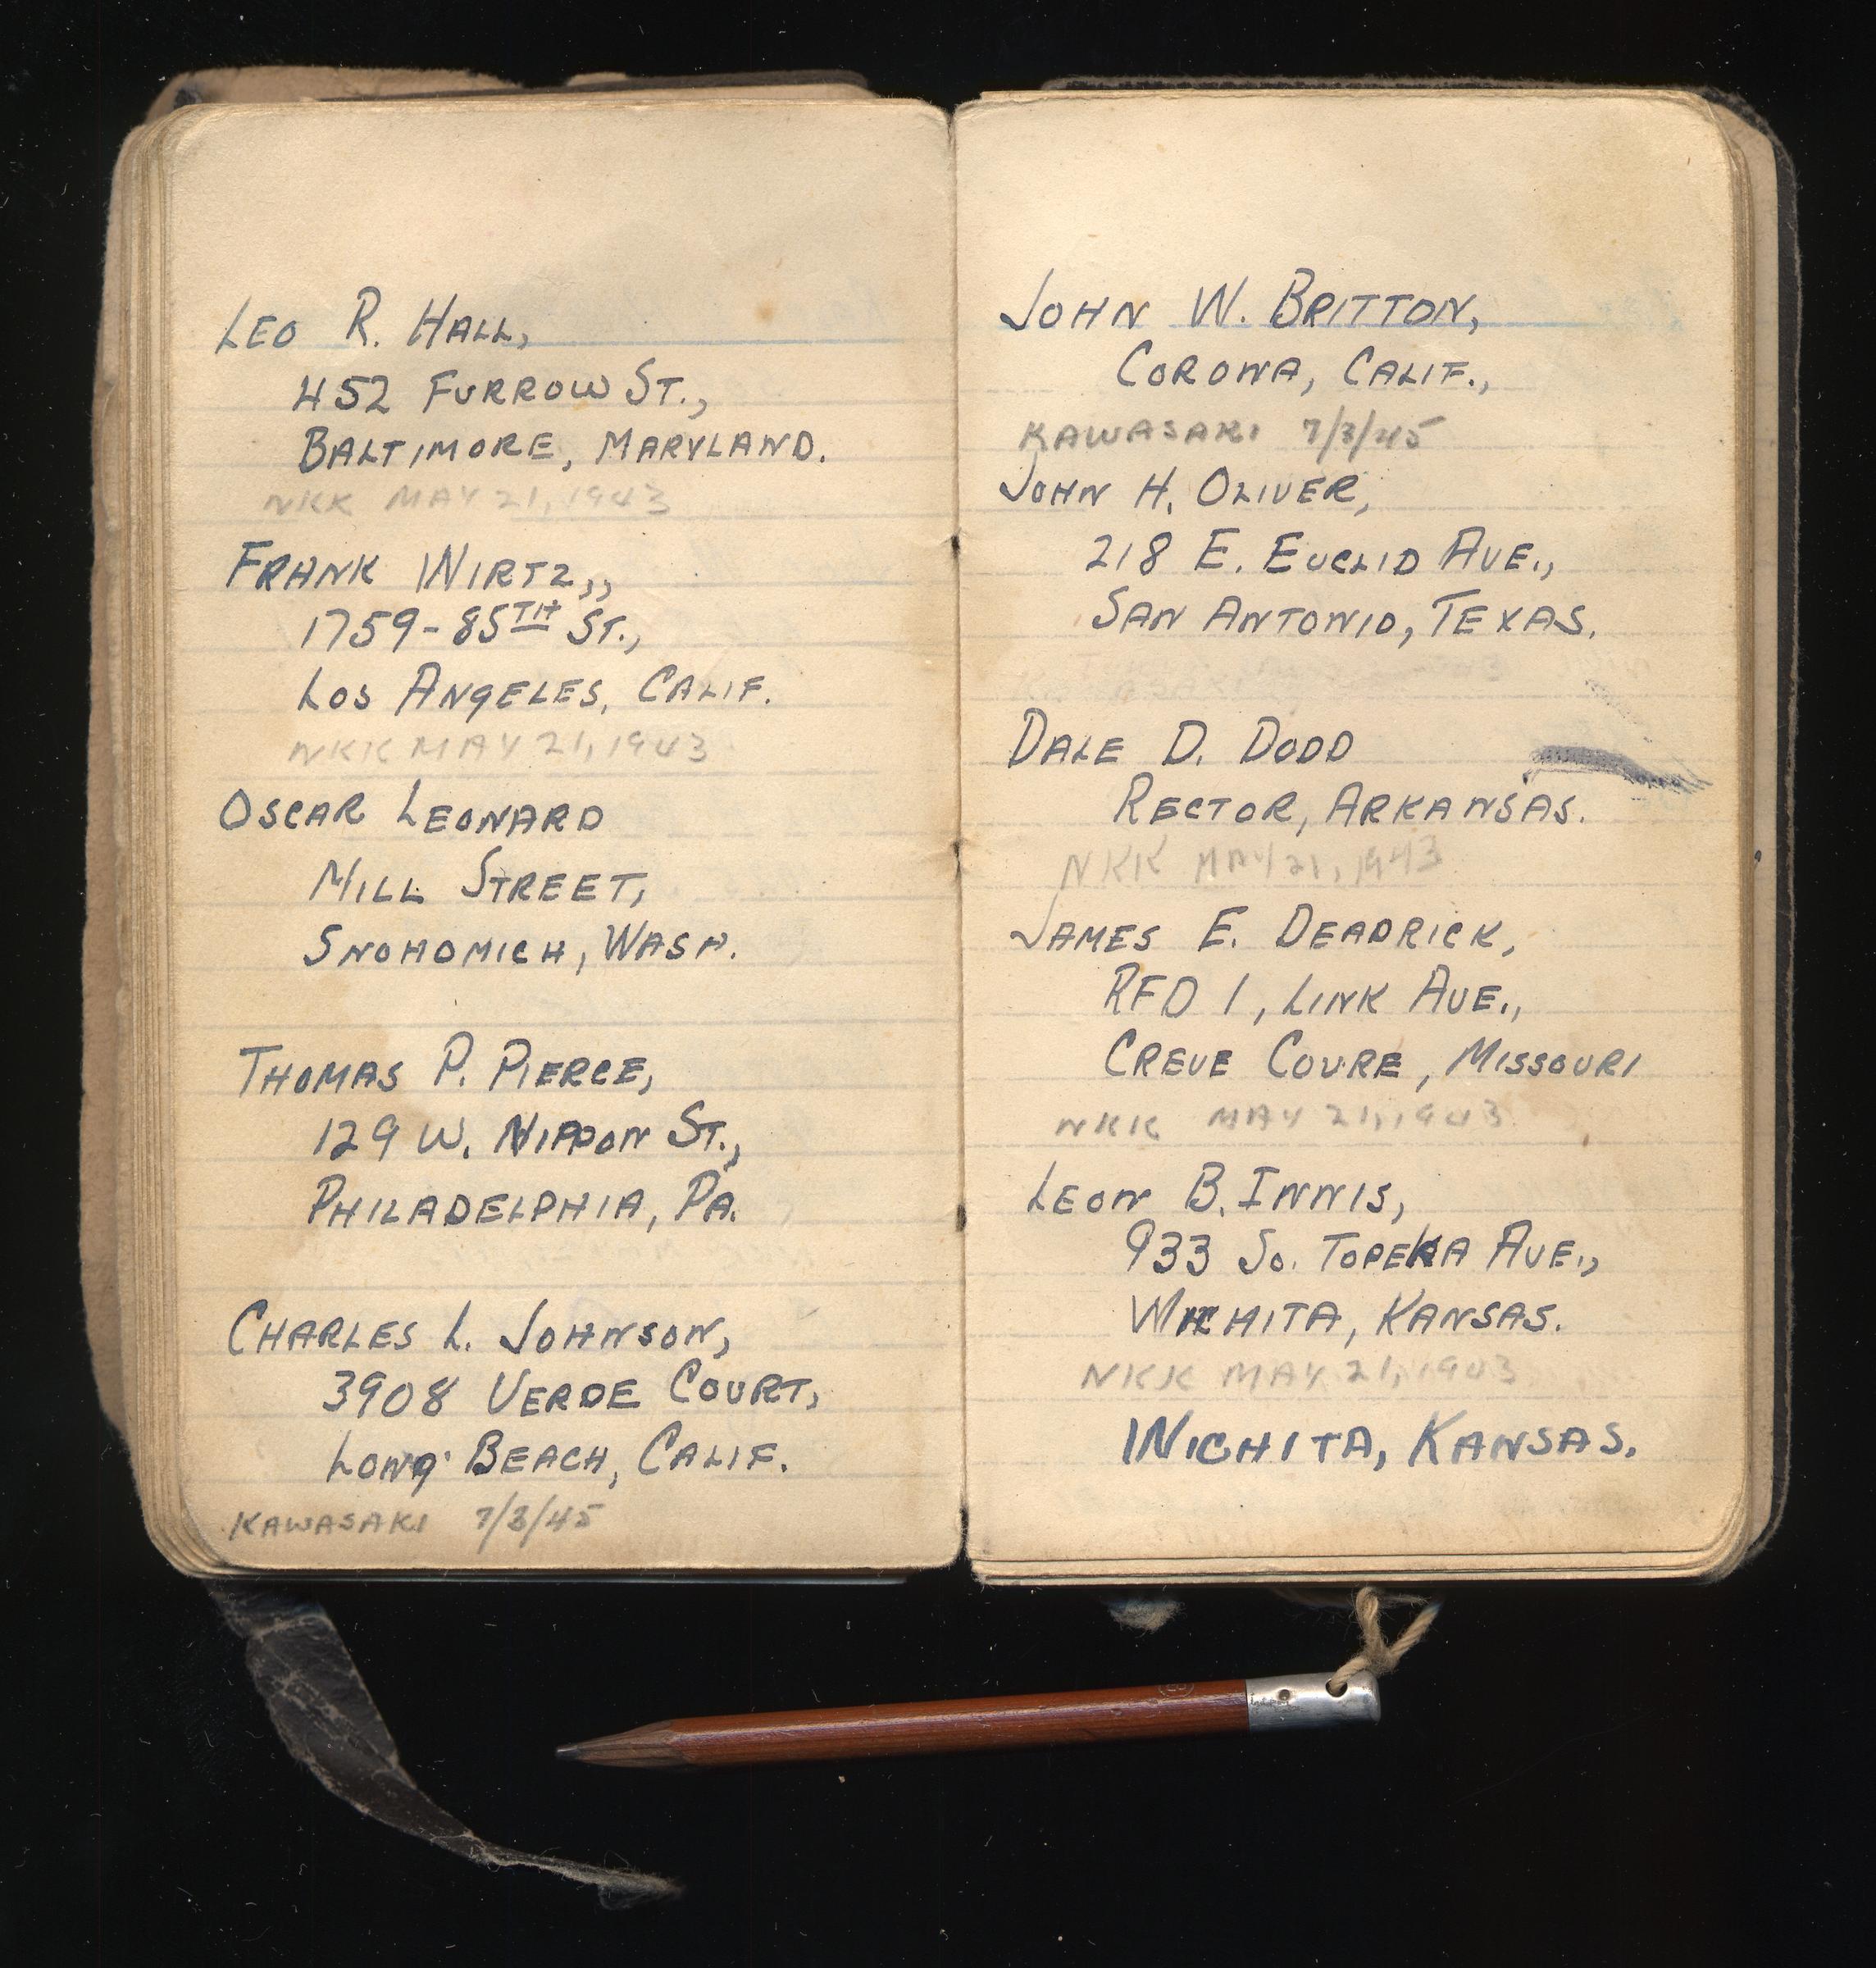 LEO R. HALL,
452 FURROW ST.,
BALTIMORE, MARYLAND.
NKK MAY 21, 1943
FRANK WIRTZ,,
1759-85TH ST.,
LOS ANGELES, CALIF.
NKK MAY 21, 1943
OSCAR LEONARD
MILL STREET,
SNOHOMICH, WASH.
THOMAS P. PIERCE,
129 W. NIPPON ST.,
PHILADELPHIA, PA.
CHARLES L. JOHNSON,
3908 VERDE COURT,
LONG BEACH, CALIF.
KAWASAKI 7/3/45
JOHN W. BRITTON,
CORONA, CALIF.,
KAWASAKI 7/3/45
JOHN H. OLIVER,
218 E. EUCLID AVE.,
SAN ANTONIO, TEXAS.
DALE D. DODD
RECTOR, ARKANSAS.
NKK MAY 21, 1943
JAMES E. DEADRICK,
RFD 1, LINK AVE.,
CREVE COURE, MISSOURI
NKK MAY 21, 1943
LEON B. INNIS,
933 SO. TOPEKA AVE.,
WICHITA, KANSAS.
NKK MAY 21, 1943
WICHITA, KANSAS.